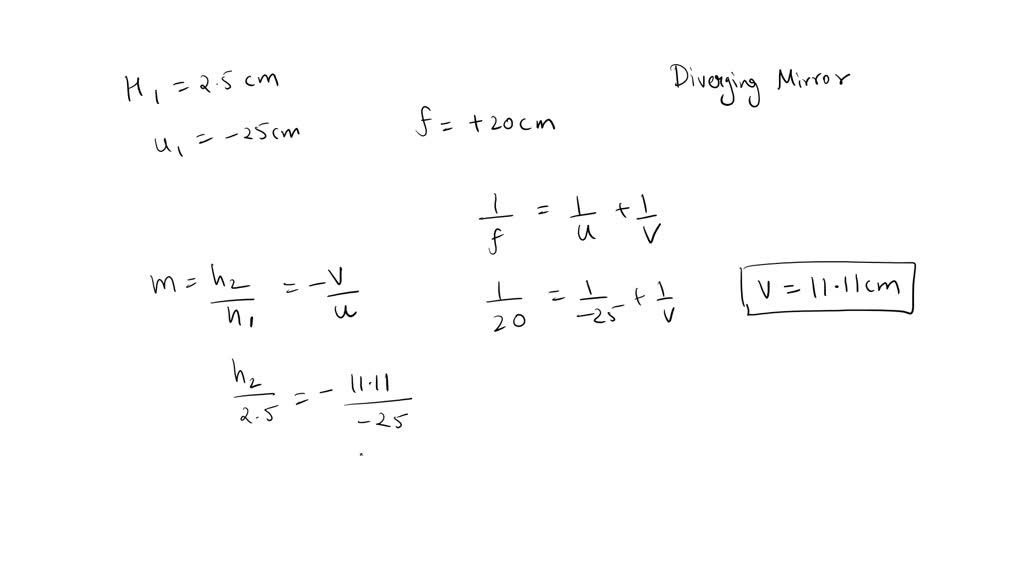 H₁ = 2.5 cm
Diverging Mirror
u₁ = -25cm
f = +20cm
1/f = 1/u + 1/v
m = h₂/h₁ = -v/u
1/20 = 1/-25 + 1/v
v = 11.11cm
h₂/2.5 = - 11.11/-25